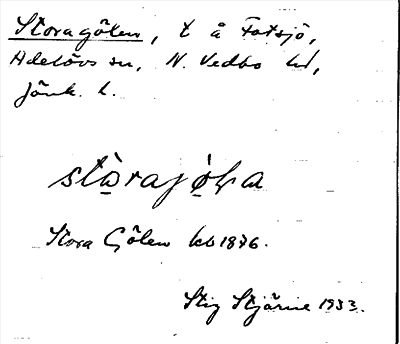 Storagölen, t å Fotsjö,
Adelövs sn, N. Vedbo hd,
Jönk. L.
Stora Gölen kb 1876.
Stig Stjärne 1933.